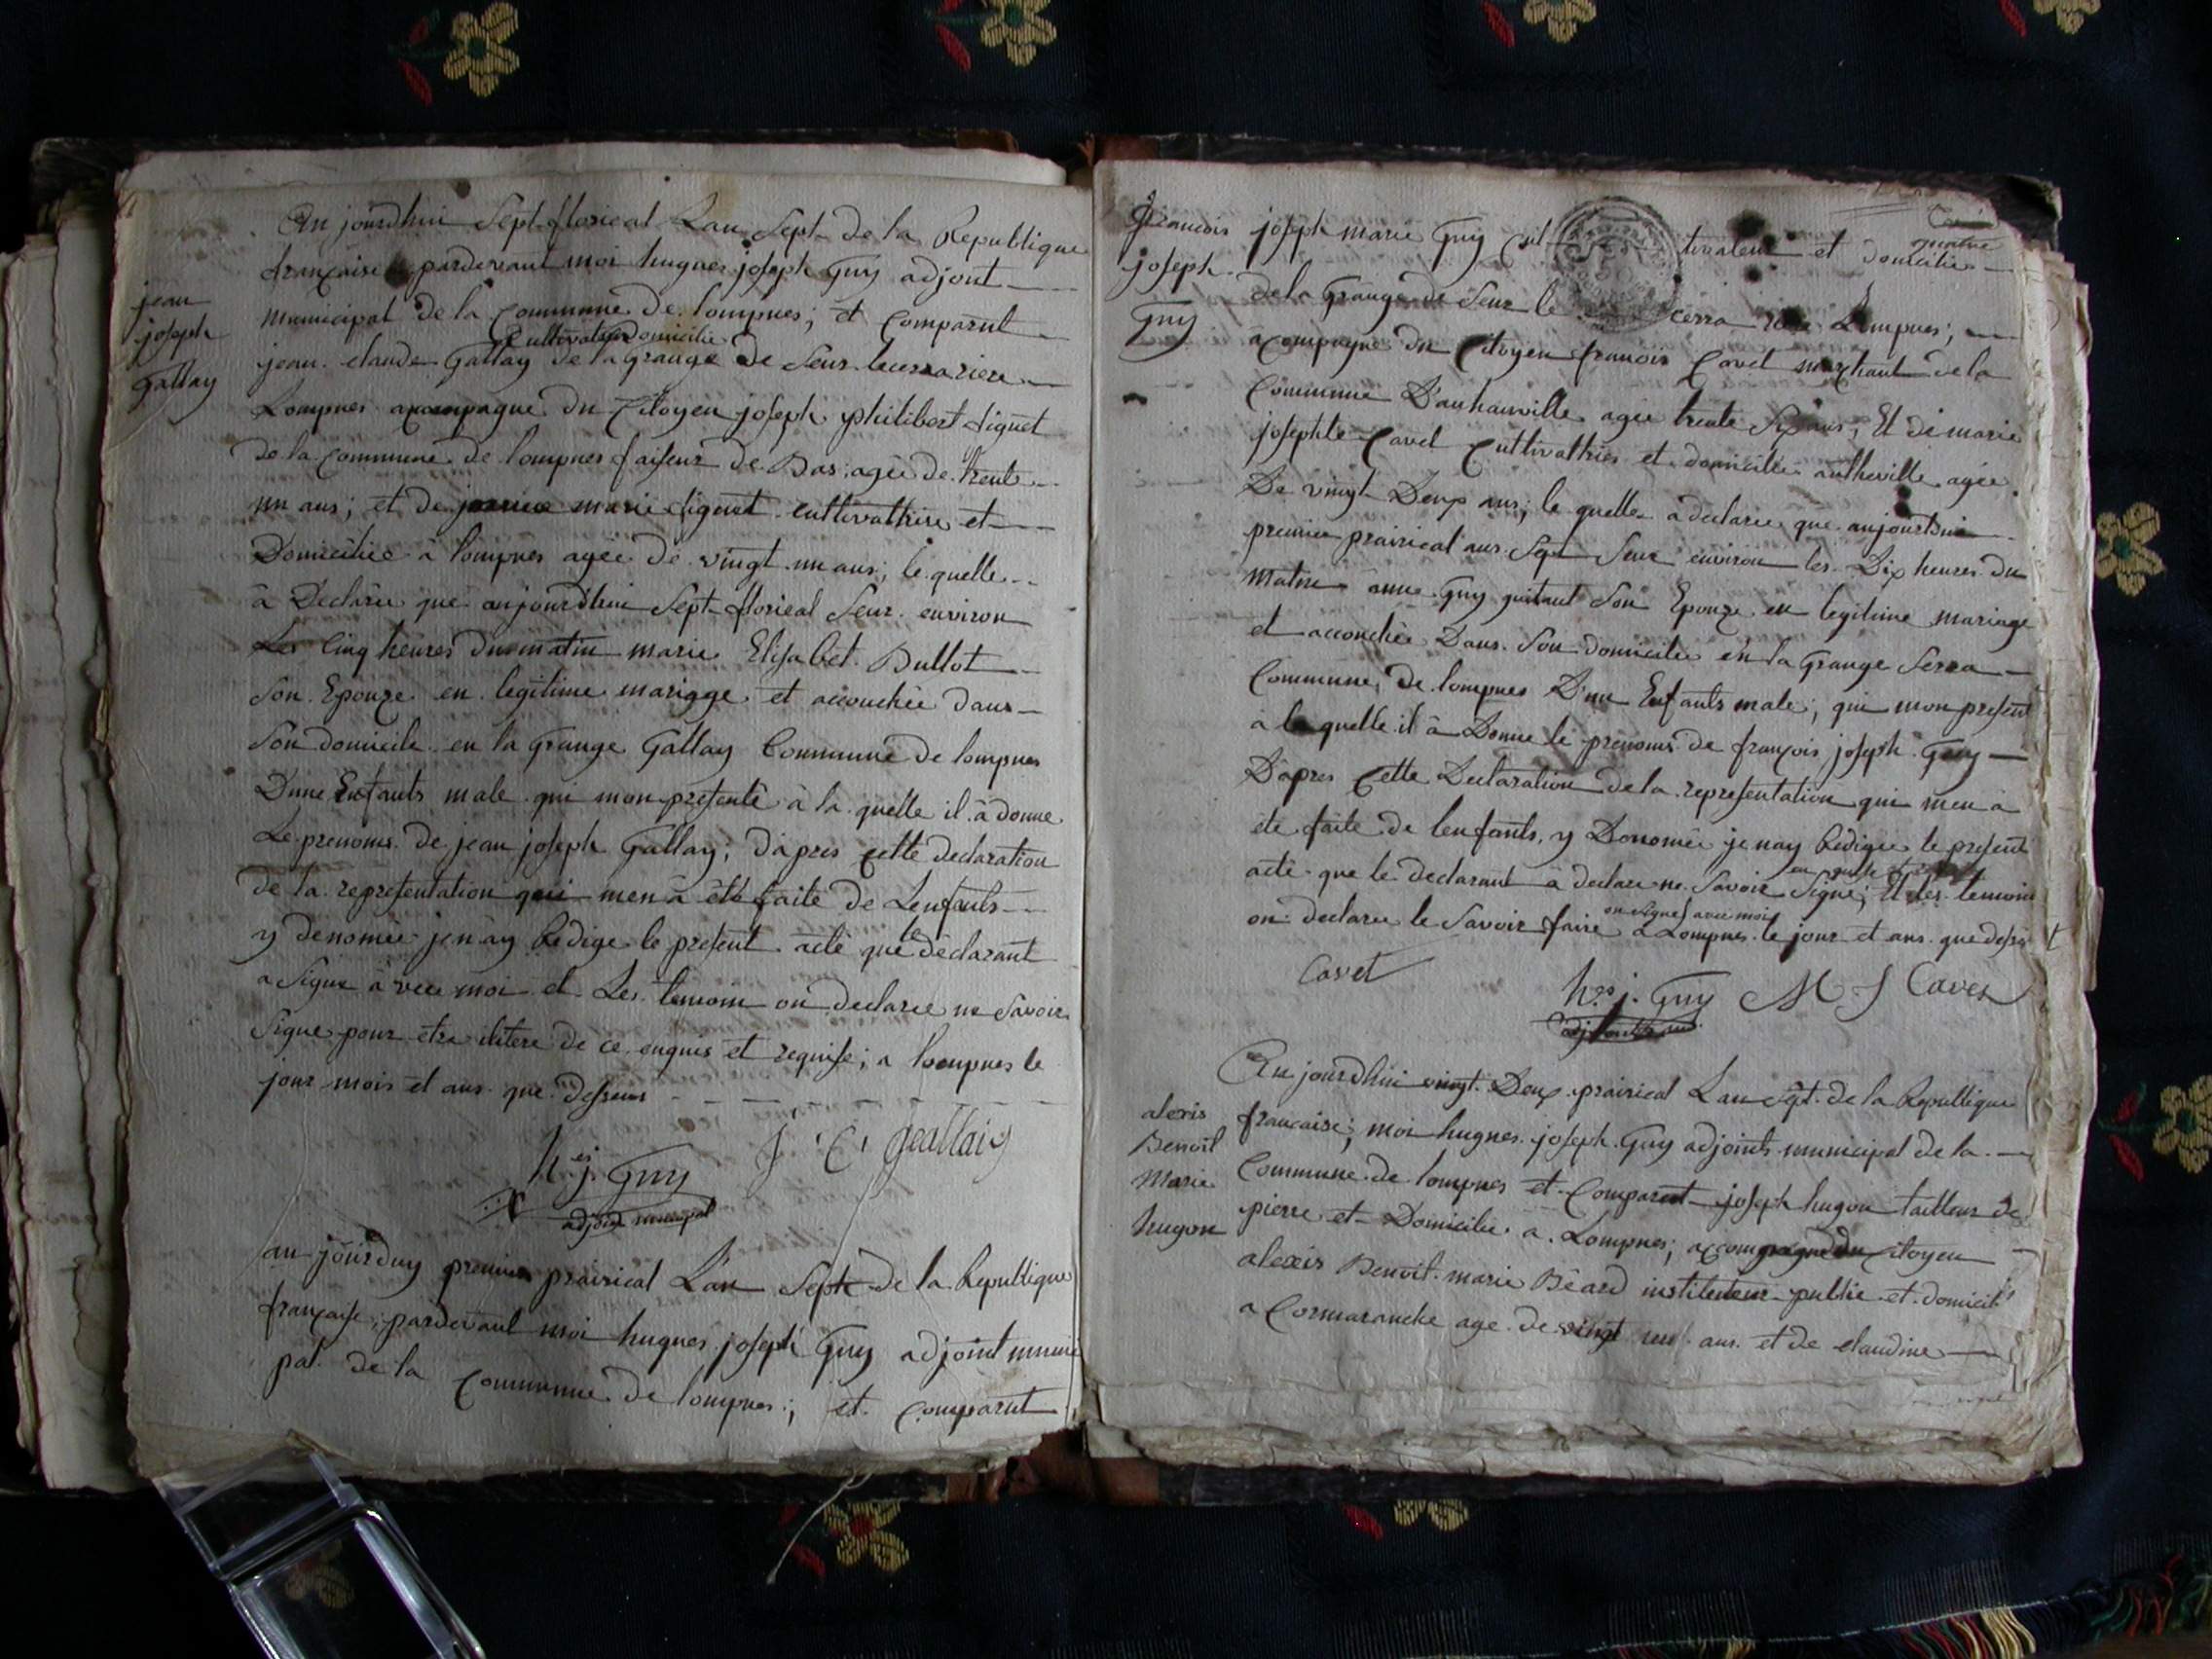 jean
joseph
Gallay
Au jourdhui Sept florieal Lan Sept de la Republique
française pardevant moi hugues joseph Guy adjoint
municipal de la Commune de lompnes; et Comparut
Cultivateur Domicilie
jean claude Gallay de la grange de Seur lecerrariere
Lompnes acompagne du Citoyen joseph philibert
de la Commune de lompnes faiseur de Bas agee de trente
un ans; et de marie cultivathrise et
Domiciliée à lompnes agée de vingt un ans; le quelle
à Déclaree que aujourdhui Sept florieal Seur environ
Les Cinq heures du matin marie Elisabet Bullot
Son Epouze en legitime mariage et accouchée dans
Son domicile en la Grange Gallay Commune de lompnes
Dune Enfants male qui mon presenté à la quelle il à donne
Le prenoms de jean joseph Gallay; dapres cette declaration
de la representation qui men à été faite de Lenfants
y denomée jenay Redige le present acte que le declarant
a Signe à vec moi et Les temoin on declaree ne Savoir
Signe pour etre ilitere de ce enquis et requise; a lompnes le
jour mois et ans que dessus
hes j. Guy J C Geallaiy
adjoint municipal
au jourduy premier prairieal Lan Sept de la Republique
française; pardevant moi hugues joseph Guy adjoint munici
pal de la Commune de lompnes; et Comparut
quatre
francois
joseph
Guy
joseph marie Guy Cul tivateur et domicilie
de la Grange de Seur le cerra Lompnes;
acompagne du Citoyen francois Cavet marchant de la
Commune Dauhauville agee trente Six ans; Et de marie
josephte Cavet Cultivathrise et domiciliée autheville agée
De vingt Deux ans; le quelle à declaree que aujourdhui
premier prairieal ans Sept Seur environ les Dix heures du
matin anne Guy Son Epouze en legitime mariage
et accouchée Dans Son domicilie en la Grange Serra
Commune de lompnes Dun Enfants male; qui mon present
à la quelle il à Donne le prenoms de françois joseph Guy
Dapres Cette Declaration de la representation qui men à
été faite de lenfants y Denomée jenay Redigee le present
acte que le declarant à declare ne Savoir Signe; Et les temoin
on declaree le Savoir faire on Signes avec moi a Lompnes le jour et ans que dessus
Cavet hes j. Guy M J Cavet
adjoint
alexis
Benoit
Marie
hugon
Au jourdhui vingt Deux prairieal Lan Sept de la Republique
francaise; moi hugues joseph Guy adjoints municipal de la
Commune de lompnes et Comparut joseph hugon tailleur de
pierre et Domicilie a Lompnes; acompagne du Citoyen
alexis Benoit marie Béard instituteur public et domicil
a Cormaranche age de vingt neuf ans et de claudine